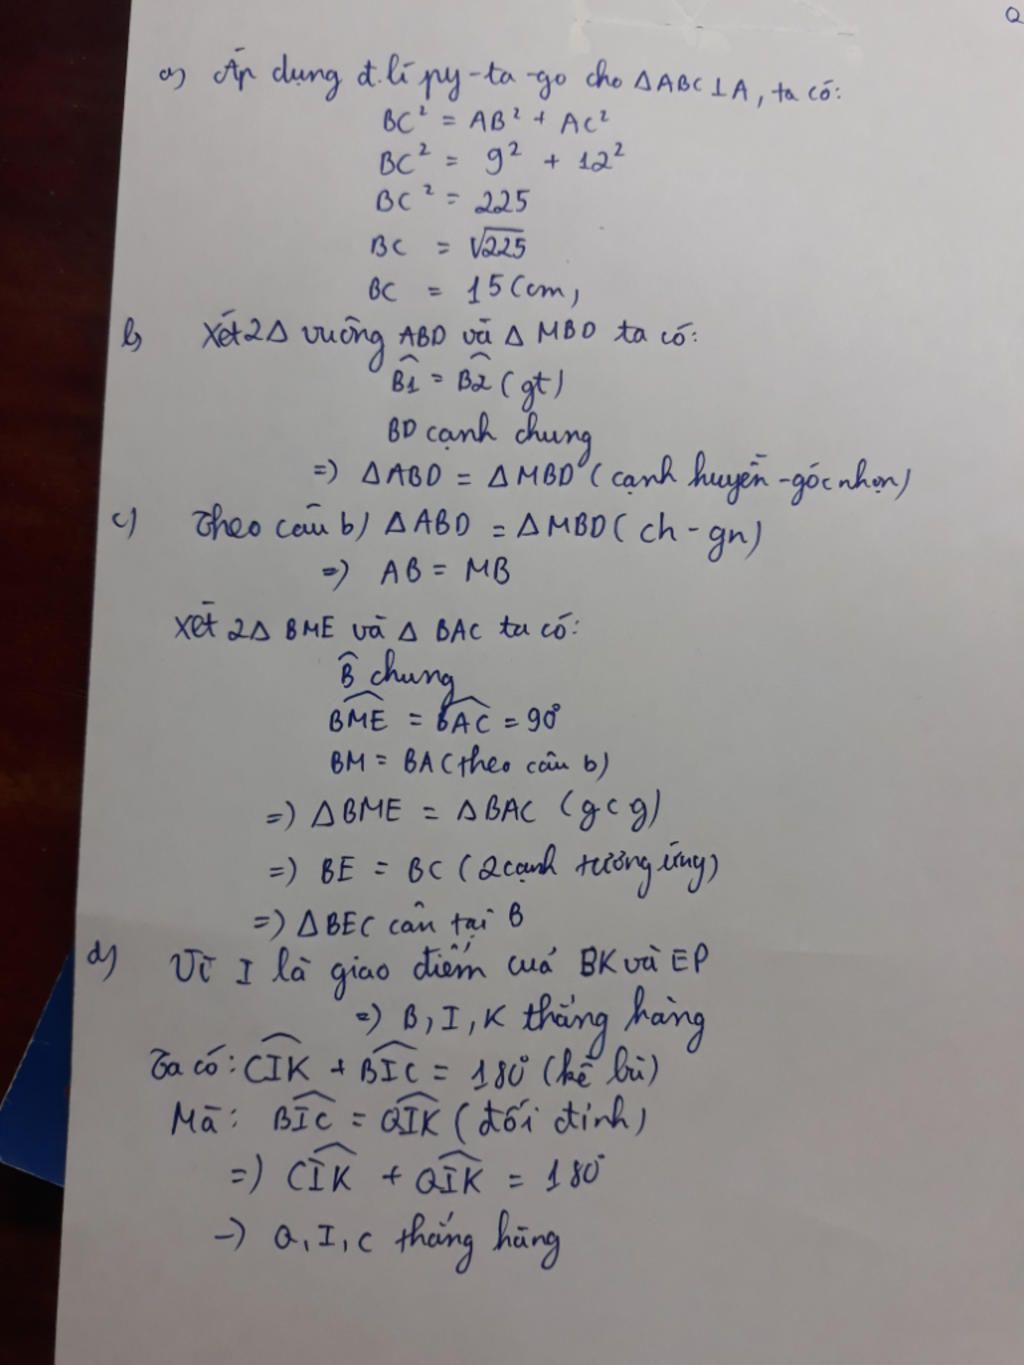 Q
a) Áp dụng đ.lí py-ta-go cho ΔABC⊥A, ta có:
BC² = AB² + AC²
BC² = 9² + 12²
BC² = 225
BC = √225
BC = 15 (cm)
b) Xét 2Δ vuông ABD và Δ MBD ta có:
B̂1 = B̂2 (gt)
BD cạnh chung
=) ΔABD = ΔMBD (cạnh huyền - góc nhọn)
c) Theo câu b) ΔABD = ΔMBD (ch - gn)
=) AB = MB
Xét 2Δ BME và Δ BAC ta có:
B̂ chung
\widehat{BME} = \widehat{BAC} = 90°
BM = BA (theo câu b)
=) ΔBME = ΔBAC (gcg)
=) BE = BC (2 cạnh tương ứng)
=) ΔBEC cân tại B
d) Vì I là giao điểm cuả BK và EP
=) B, I, K thẳng hàng
Ta có: \widehat{CIK} + \widehat{BIC} = 180° (kề bù)
Mà: \widehat{BIC} = \widehat{QIK} (đối đỉnh)
=) \widehat{CIK} + \widehat{QIK} = 180°
-) Q, I, C thẳng hàng